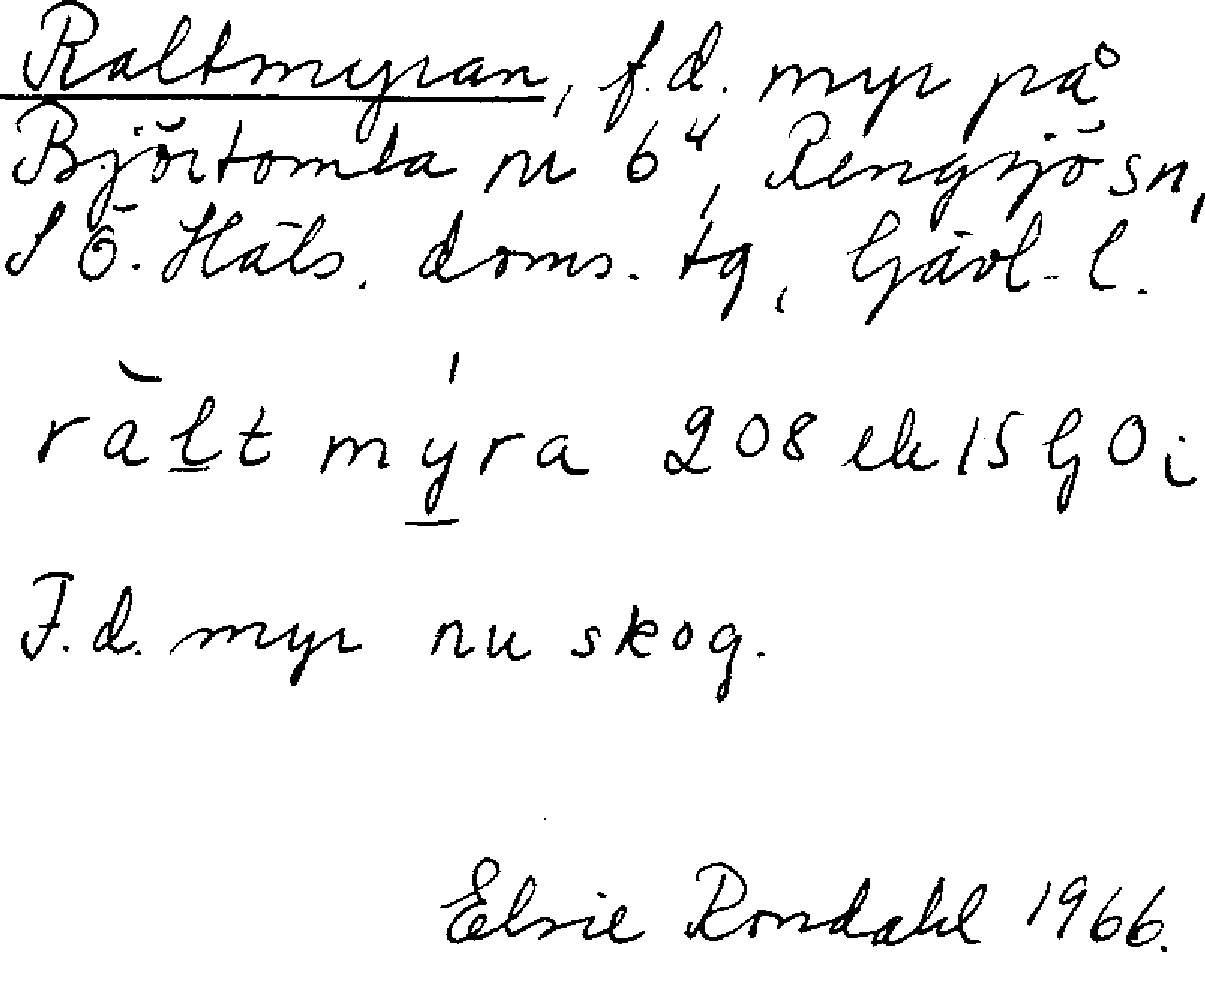 Raltmyran, f.d. myr på
Björtomta nr 6⁴, Rengsjö sn,
S Ö. Häls. doms. tg, Gävl. l.
ràḻt mý̱ra 208 ek 15 G O i
F.d. myr nu skog.
Elsie Rondahl 1966.